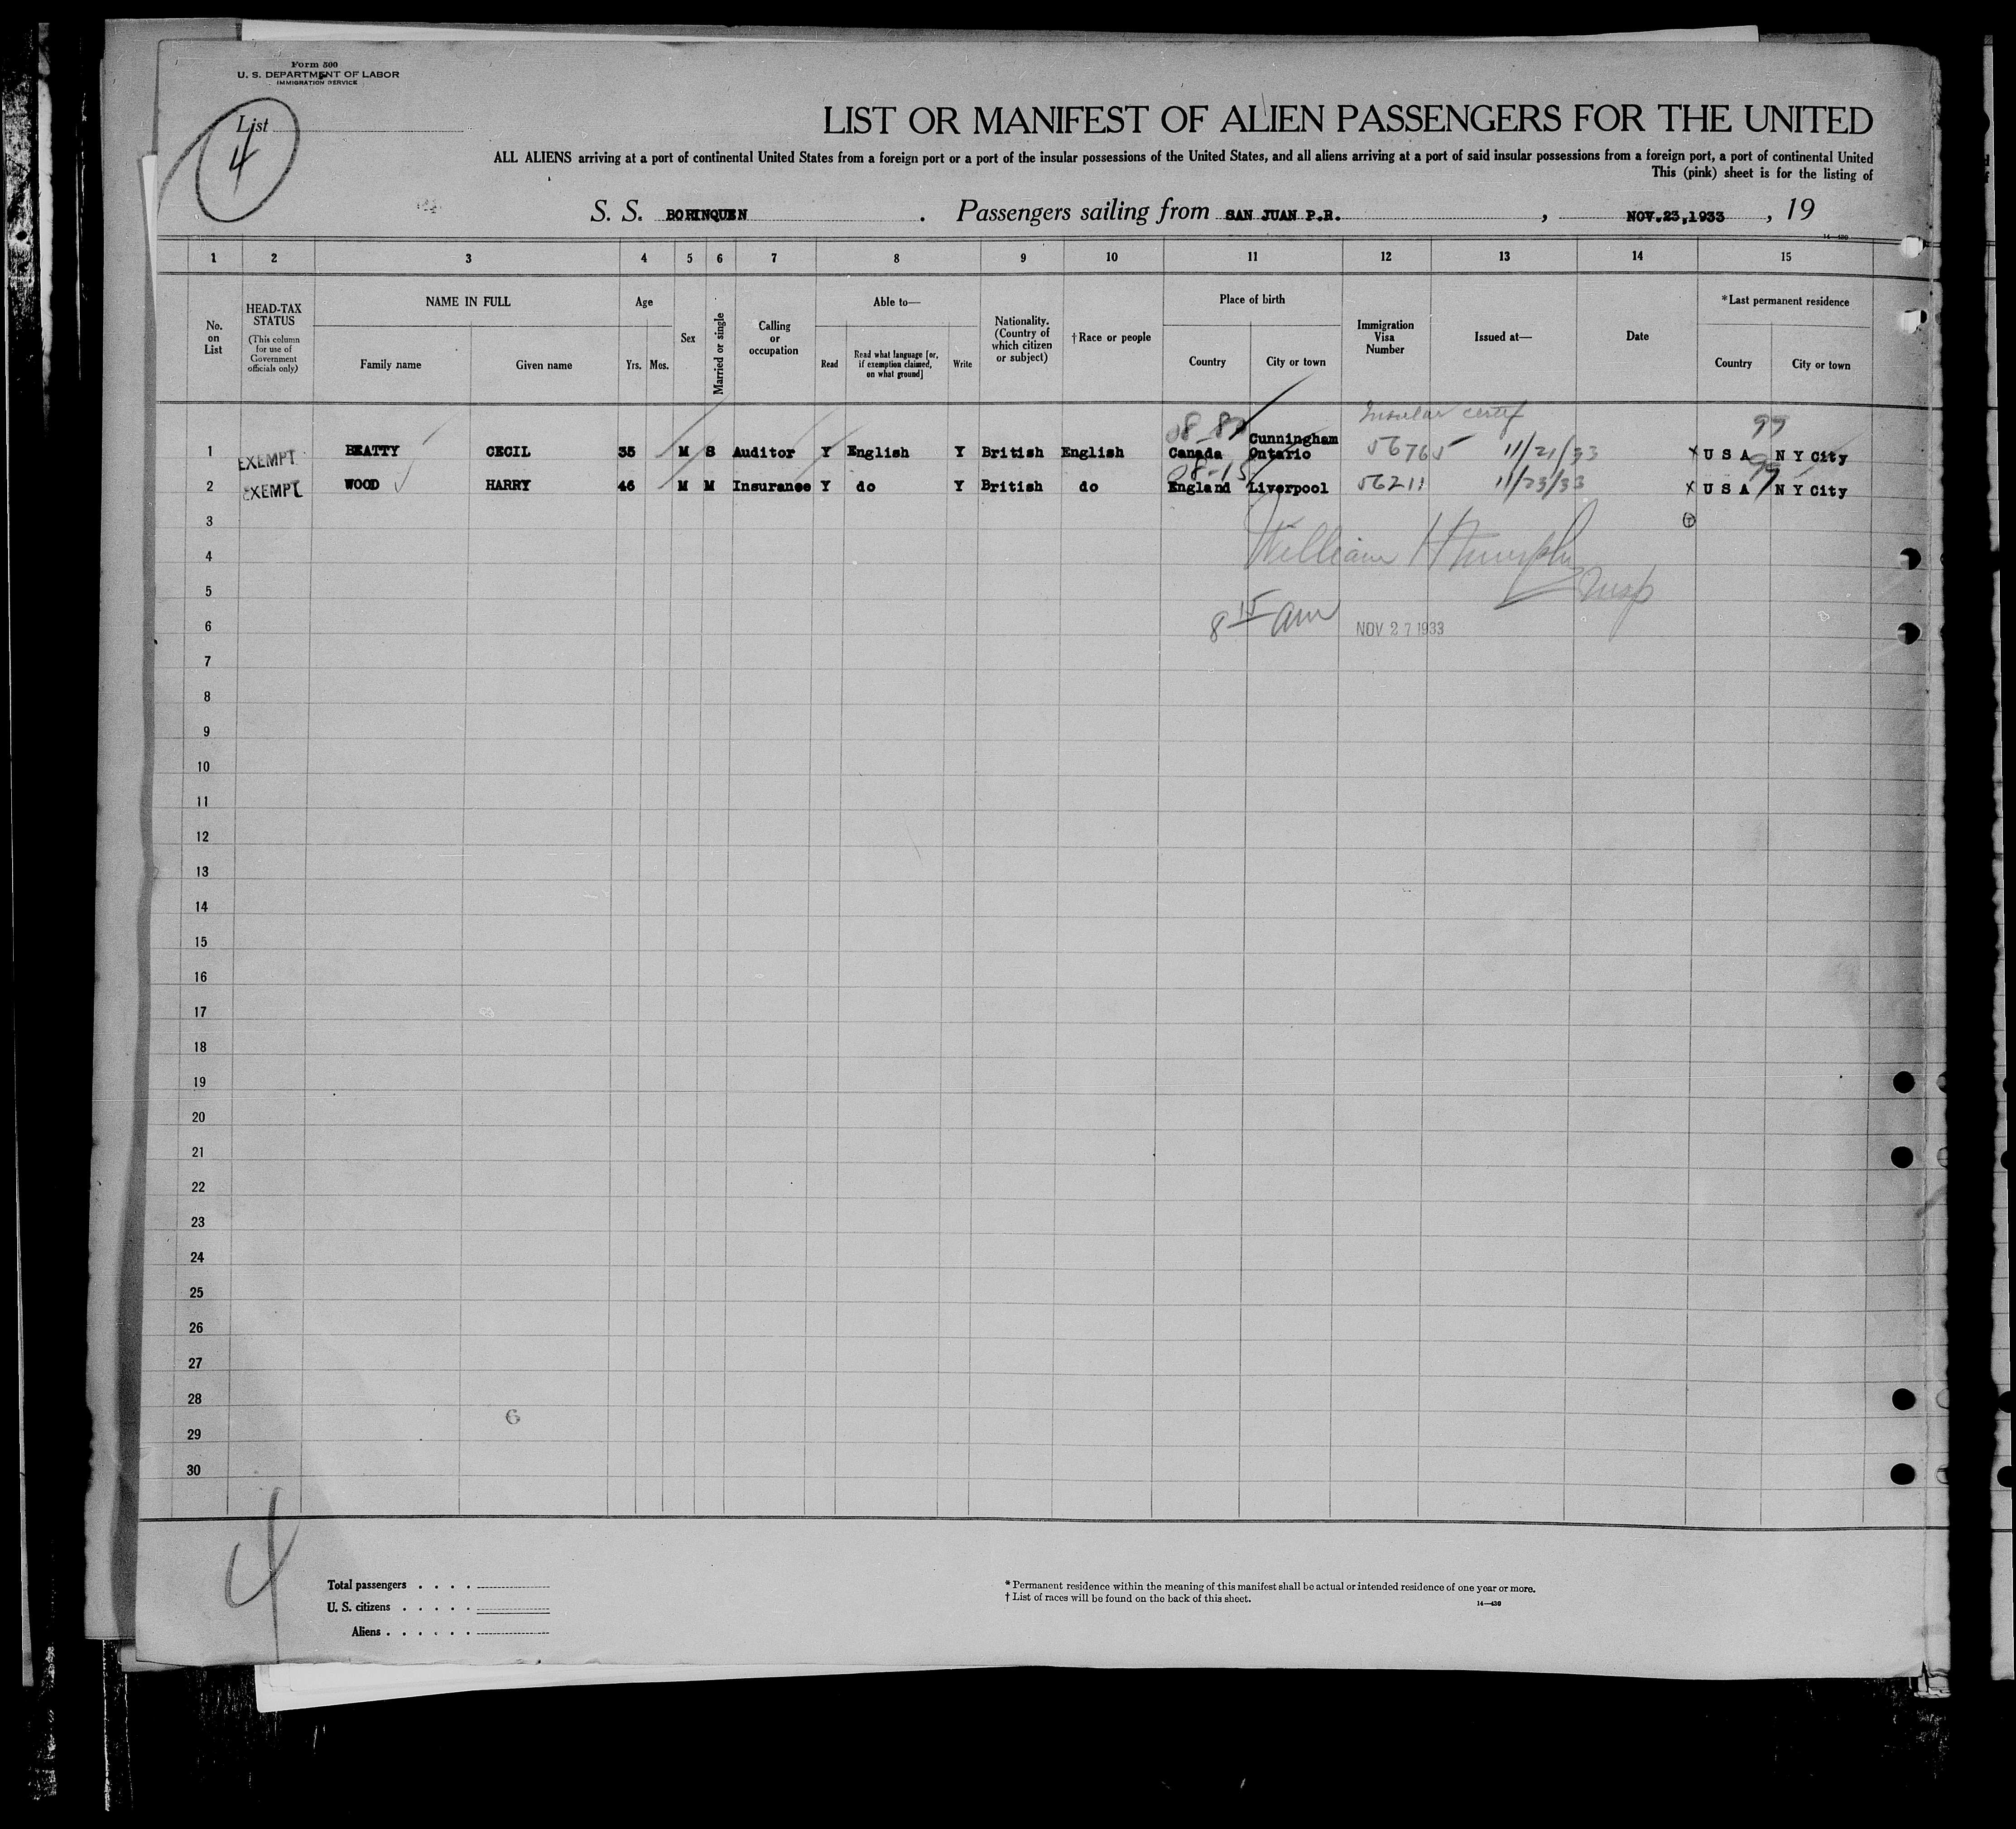 Form 500
U. S. DEPARTMENT OF LABOR
IMMIGRATION SERVICE
List
4
LIST OR MANIFEST OF ALIEN PASSENGERS FOR THE UNITED
ALL ALIENS arriving at a port of continental United States from a foreign port or a port of the insular possessions of the United States, and all aliens arriving at a port of said insular possessions from a foreign port, a port of continental United
This (pink) sheet is for the listing of
S. S. BORINQUEN . Passengers sailing from SAN JUAN P.R. , NOV.23,1933 , 19
14—430
1 2 3 4 5 6 7 8 9 10 11 12 13 14 15
No. on List
HEAD-TAX STATUS
(This column for use of Government officials only)
NAME IN FULL
Family name
Given name
Age
Yrs. Mos.
Sex
Married or single
Calling or occupation
Able to—
Read
Read what language [or, if exemption claimed, on what ground]
Write
Nationality. (Country of which citizen or subject)
†Race or people
Place of birth
Country
City or town
Immigration Visa Number
Issued at—
Date
*Last permanent residence
Country
City or town
Insular certif
99
1 EXEMPT BEATTY CECIL 35 M S Auditor Y English Y British English Canada Cunningham Ontario 56765 11/21/33 x U S A N Y City
08-15 99
2 EXEMPT WOOD HARRY 46 M M Insurance Y do Y British do England Liverpool 56211 11/23/33 x U S A N Y City
3
4 William H Murphy
5 Insp
6 8 15 am NOV 27 1933
7
8
9
10
11
12
13
14
15
16
17
18
19
20
21
22
23
24
25
26
27
28
6
29
30
4
Total passengers . . . .
U. S. citizens . . . . .
Aliens . . . . . .
* Permanent residence within the meaning of this manifest shall be actual or intended residence of one year or more.
† List of races will be found on the back of this sheet.
14—430